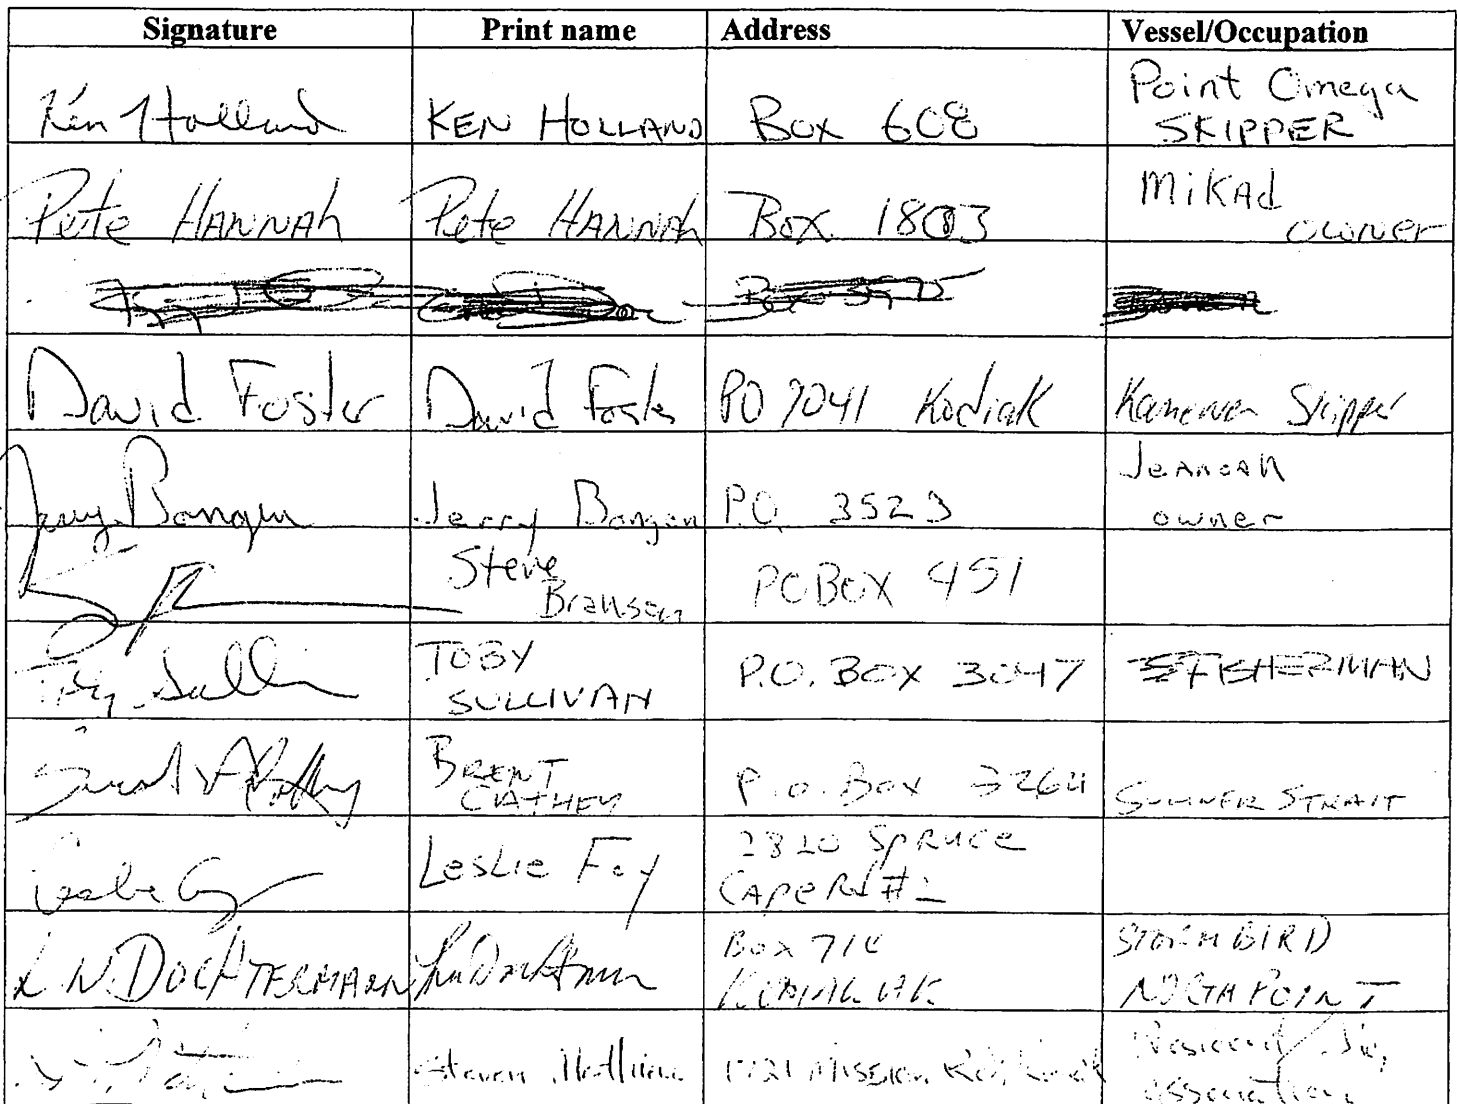 Signature Print name Address Vessel/Occupation
Ken Holland KEN HOLLAND Box 608 Point Omega
SKIPPER
Pete HANNAH Pete HANNAH Box 1803 Mikad
owner
David Foster David Foster PO 7041 Kodiak Skipper
Jerry Bongen Jerry Bongen P.O. 3523 Jeanoah
owner
Steve
Branson
PO BOX 451
Toby Sullivan TOBY
SULLIVAN
P.O. BOX 3047 FISHERMAN
BRENT
CATHEY
P.O. Box 3264 SUMNER STRAIT
Leslie Fay
2820 Spruce
Cape Rd
L N. DOCHTERMANN Box
KODIAK AK
STORMBIRD
NORTH POINT
Steven
1721 Mission Rd,
association